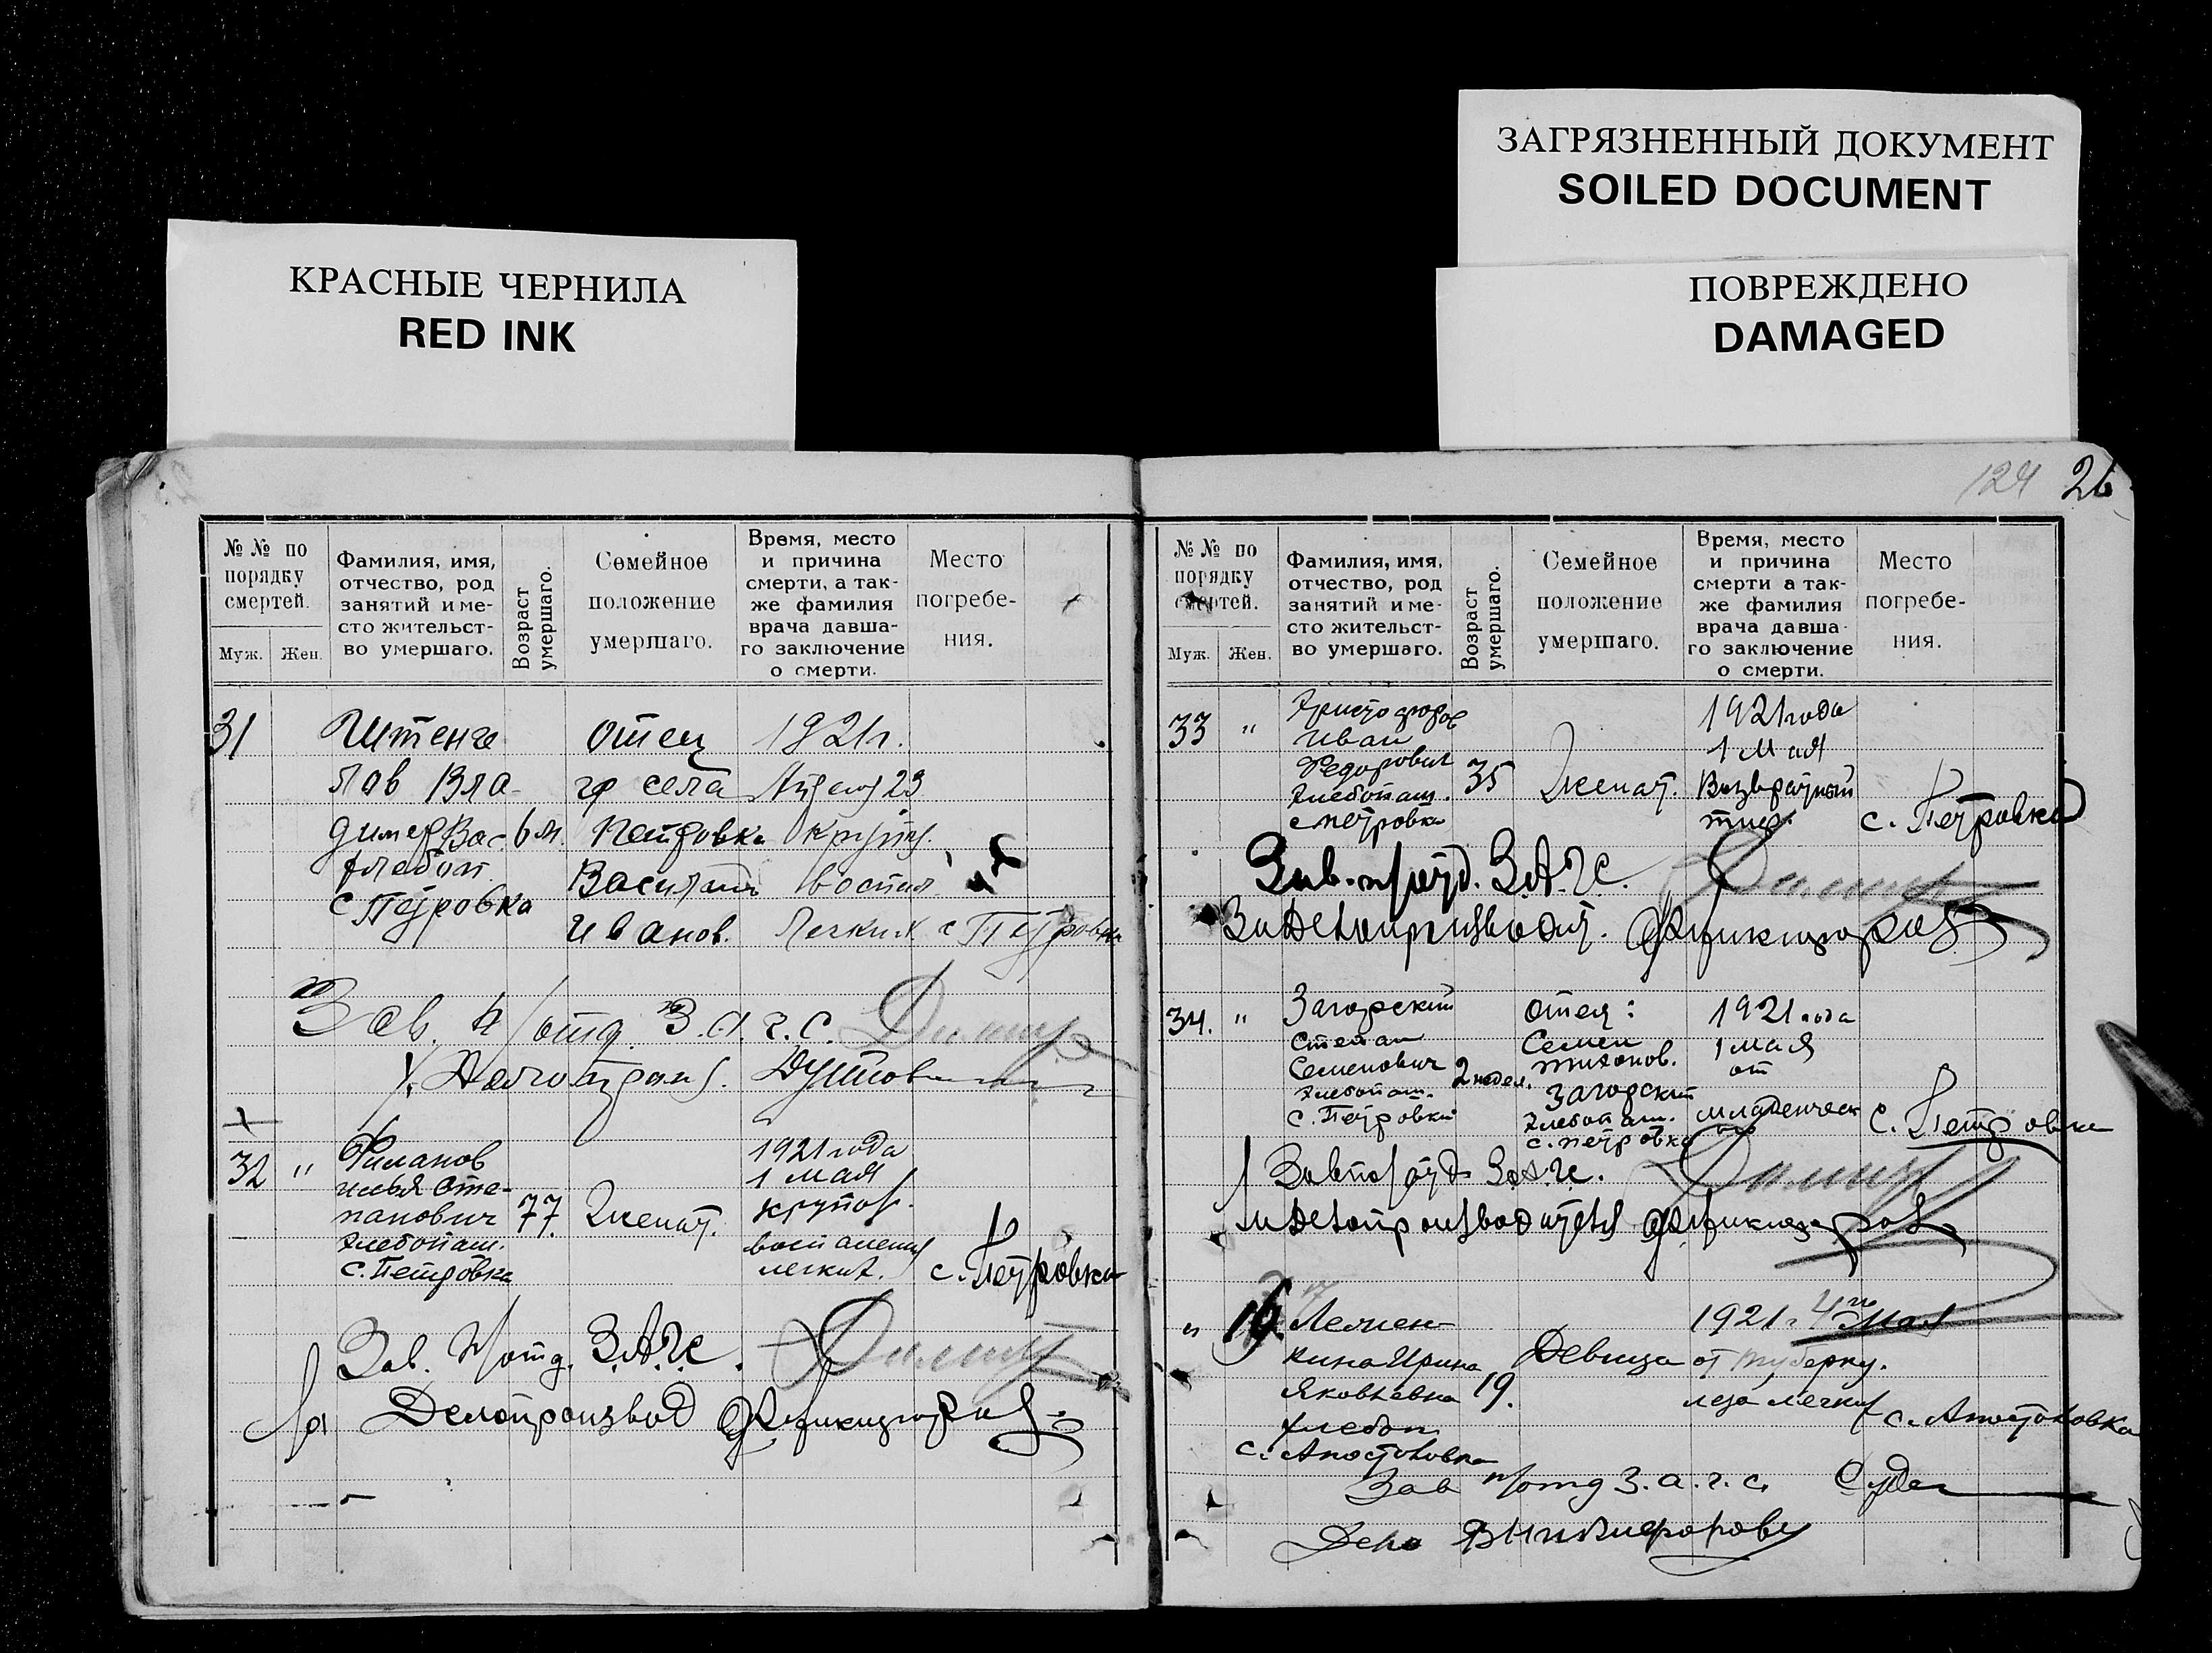 ЗАГРЯЗНЕННЫЙ ДОКУМЕНТ
SOILED DOCUMENT
КРАСНЫЕ ЧЕРНИЛА
RED INK
ПОВРЕЖДЕНО
DAMAGED
№ № по порядку смертей.
Муж. Жен.
Фамилия, имя,
отчество, род
занятий и ме-
сто жительст-
во умершаго.
Возраст
умершаго.
Семейное
положение
умершаго.
Время, место
и причина
смерти, а так-
же фамилия
врача давша-
го заключение
о смерти.
Место
погребе-
ния.
31
Штенге
лов Вла-
димер Вас
хлебоп.
с Петровка
6 м.
отец
гр села
Петровка
Василий
Иванов.
1921 г.
23
крупоз.
воспал.
легких
с Петровка
Зав. п/отд. З.а.г.с.
32 "
Филанов
илья Сте-
панович
хлебопаш.
с. Петровка
77.
Женат.
1921 года
1 мая
крупоз.
воспаления
легких.
с. Петровка
Зав. п/отд. З.А.Г.С.
Делопроизвод
124 26
№ № по
порядку
смертей.
Муж. Жен.
Фамилия, имя,
отчество, род
занятий и ме-
сто жительст-
во умершаго.
Возраст
умершаго.
Семейное
положение
умершаго.
Время, место
и причина
смерти а так-
же фамилия
врача давша-
го заключение
о смерти.
Место
погребе-
ния.
33 "
Христофоров
Иван
Федорович
хлебопаш.
с петровка
35
Женат.
1921 года
1 Мая
Возвратный
тиф.
с. Петровка
Зав. п/отд. З.А.Г.С.
За Делопроизводит.
34. "
Загорский
Степан
Семенович
хлебопаш.
с. Петровки
2 недел.
отец:
Семен
Тихонов.
Загорский
хлебопаш.
с. петровка
1921 года
1 мая
от
младенческ
с. Петровка
Зав п/отд З.А.Г.С.
и Делопроизводитель
"
Лемен
кина Ирина
Яковлевна
хлебоп
с. Апостоловка
19.
Девица
1921 г 4го Мая
от туберку.
леза легких
с. Апостоловка
Зав п/отд З.а.г.с.
Дело ВНикифорову